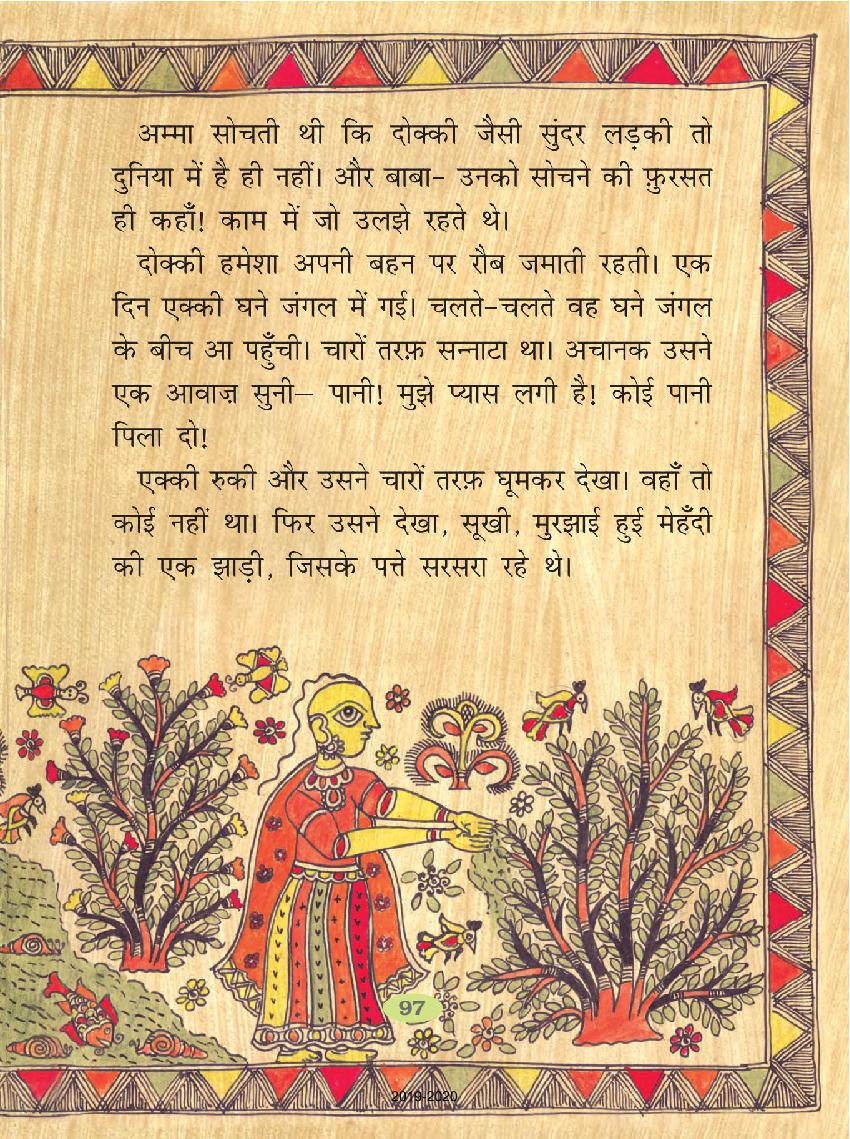 अम्मा सोचती थी कि दोक्की जैसी सुंदर लड़की तो
दुनिया में है ही नहीं। और बाबा– उनको सोचने की फ़ुरसत
ही कहाँ! काम में जो उलझे रहते थे।
दोक्की हमेशा अपनी बहन पर रौब जमाती रहती। एक
दिन एक्की घने जंगल में गई। चलते-चलते वह घने जंगल
के बीच आ पहुँची। चारों तरफ़ सन्नाटा था। अचानक उसने
एक आवाज़ सुनी– पानी! मुझे प्यास लगी है! कोई पानी
पिला दो!
एक्की रुकी और उसने चारों तरफ़ घूमकर देखा। वहाँ तो
कोई नहीं था। फिर उसने देखा, सूखी, मुरझाई हुई मेहँदी
की एक झाड़ी, जिसके पत्ते सरसरा रहे थे।
97
2019-2020